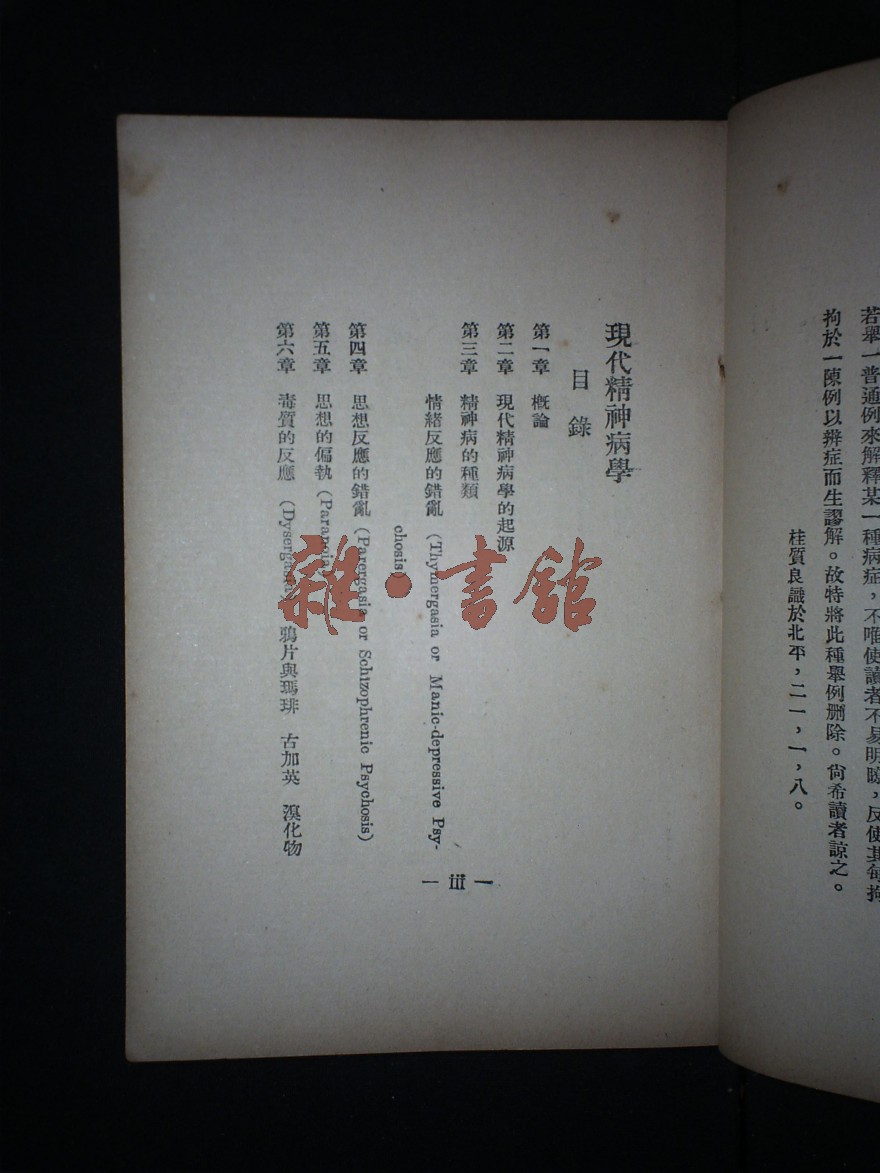 若舉一普通例來解釋某一種病症，不唯使讀者不易明瞭，反使其每拘
拘於一陳例以辨症而生謬解。故特將此種舉例删除。尙希讀者諒之。
桂質良識於北平，二一，一，八。
現代精神病學
目錄
第一章 概論
第二章 現代精神病學的起源
第三章 精神病的種類
情緒反應的錯亂 (Thymergasia or Manic-depressive Psy-
chosis)
第四章 思想反應的錯亂 (Parergasia or Schizophrenic Psychosis)
第五章 思想的偏執 (Paranoia)
第六章 毒質的反應 (Dysergasia) 鴉片與瑪琲 古加英 溴化物
— iii —
雜·書館